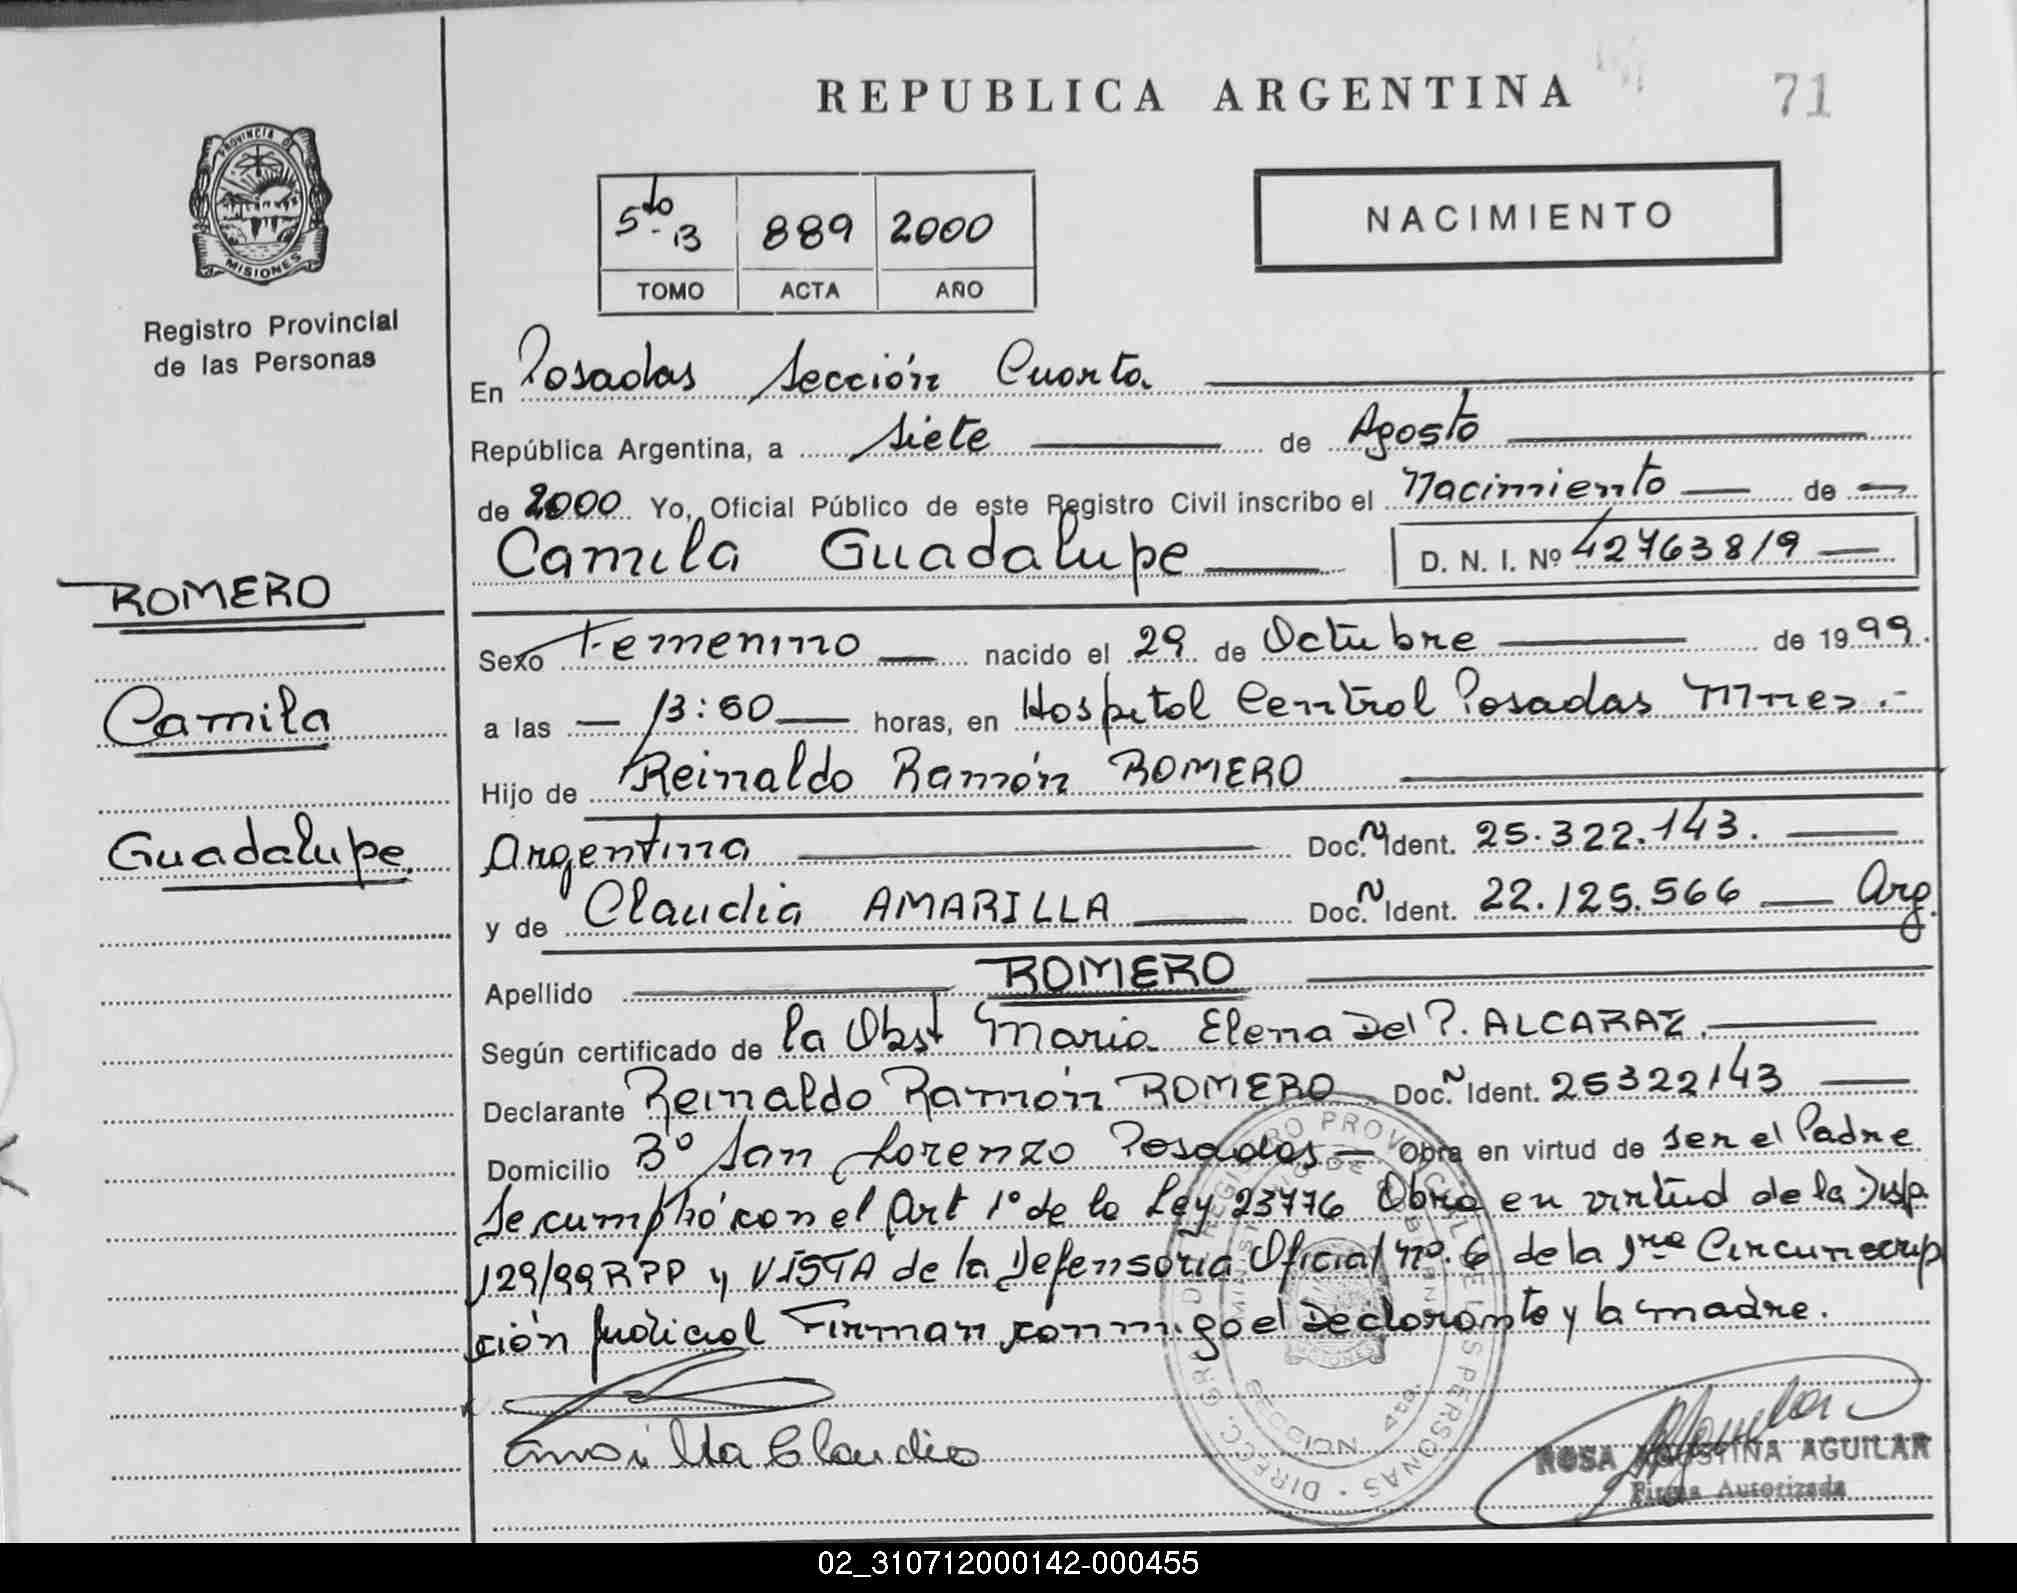 REPUBLICA ARGENTINA
71
PROVINCIA DE
MISIONES
Registro Provincial
de las Personas
5to B 889 2000
TOMO ACTA AÑO
NACIMIENTO
En Posadas Sección Cuarta
República Argentina, a Siete de Agosto
de 2000 Yo, Oficial Público de este Registro Civil inscribo el Nacimiento de
Camila Guadalupe D. N. I. Nº 42763819
ROMERO
Camila
Guadalupe
Sexo Femenino nacido el 29 de Octubre de 1999
a las 13:50 horas, en Hospital Central Posadas Mnes.
Hijo de Reinaldo Ramón ROMERO
Argentina Doc. N Ident. 25.322.143.
y de Claudia AMARILLA Doc. N Ident. 22.125.566 Arg.
Apellido ROMERO
Según certificado de la Obst Maria Elena Del P. ALCARAZ.
Declarante Reinaldo Ramón ROMERO Doc. N Ident. 25322143
Domicilio Bº San Lorenzo Posadas Obra en virtud de ser el Padre
Se cumplió con el Art 1º de la Ley 23776 Obra en virtud de la Disp.
129/99 RPP y VISTA de la Defensoria Oficial Nº. 6 de la 1ra Circunscrip
ción Judicial Firman conmigo el Declarante y la madre.
Amarilla Claudia
ROSA AGUSTINA AGUILAR
Firma Autorizada
02_310712000142-000455